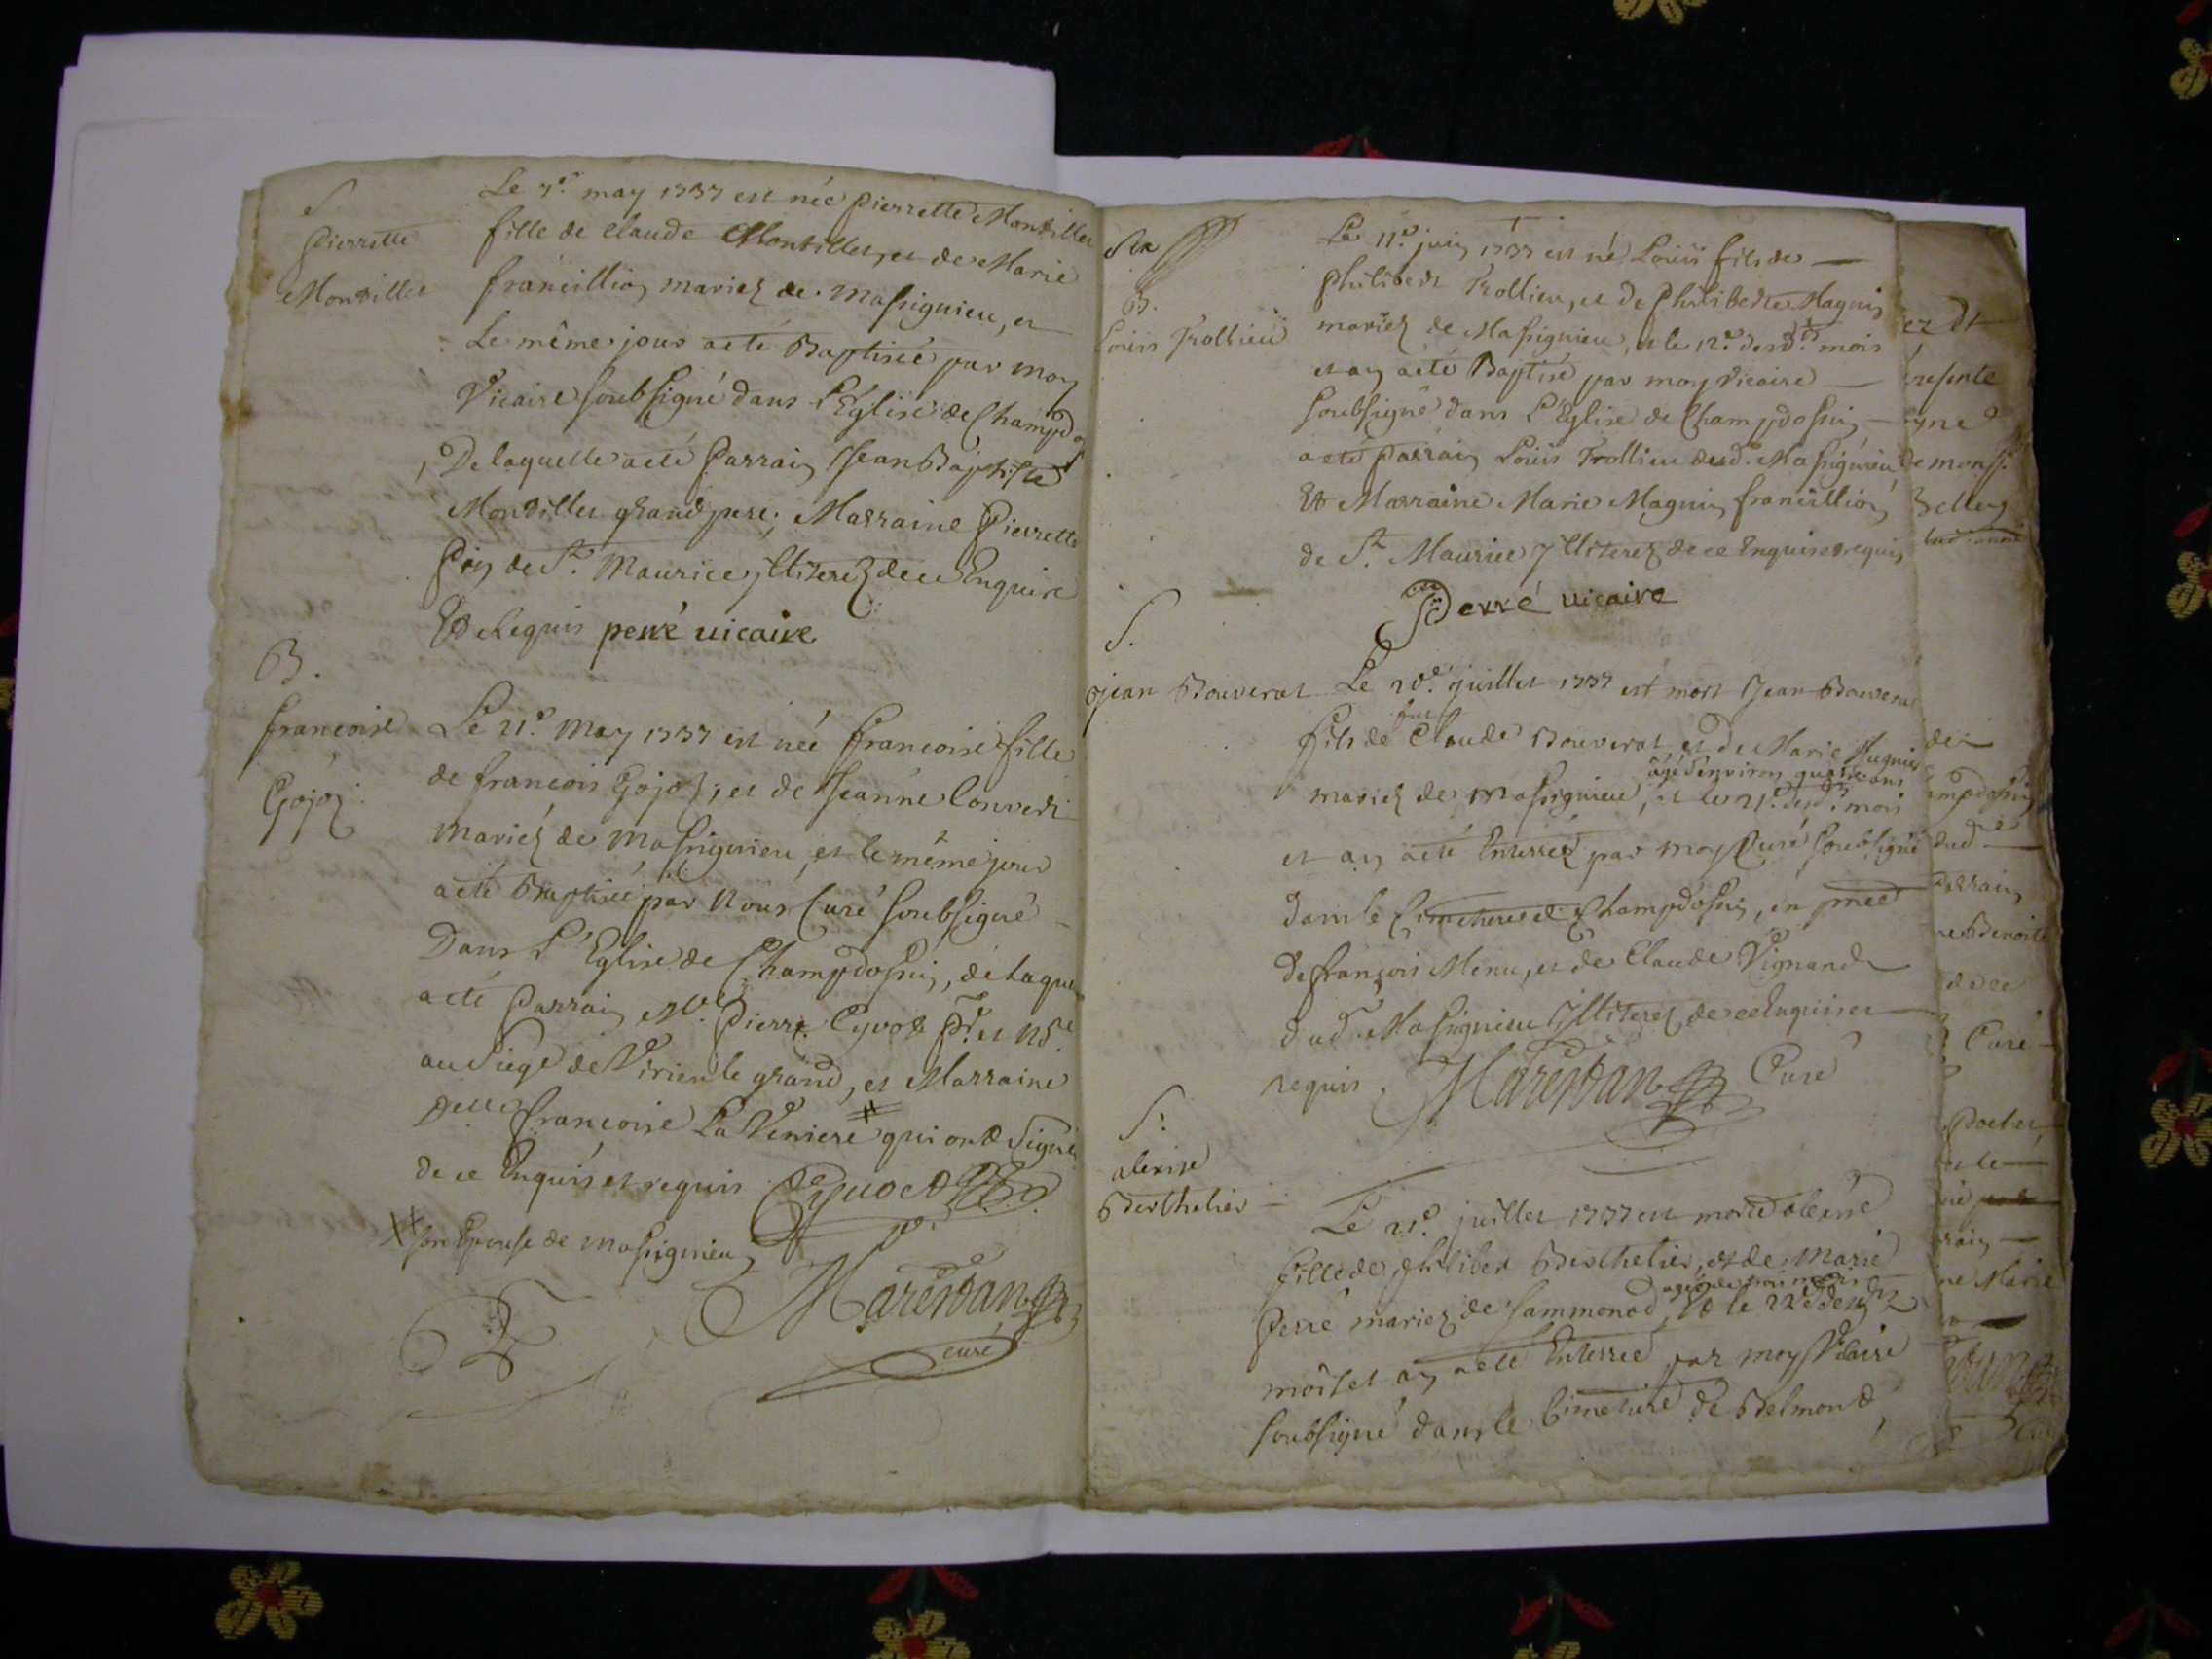 S
Pierrette
Montillet
Le 7e. may 1737 est née pierrette Montillet
fille de Claude Montillet, et de Marie
francillion mariez de Massignieu, et
Le même jour a eté Baptisée par moy
Vicaire soubsigné dans L'Eglise de Champdo
De laquelle a eté Parrain Jean Baptiste
Montillet grand pere; Marraine Pierrette
de St. Maurice jlliterez de ce Enquire
Et Requis perré vicaire
B.
francoise
Gojoz
Le 21e. May 1737 est née francoise fille
de francois Gojoz, et de Jeanne Convert
mariéz de Massignieu, et le même jour
a eté Baptisée par Nous Curé soubsigné
Dans L'Eglise de Champdossin, de Laque
a eté Parrain Mre. Pierre Cyvoct Pr. et
au siege de Virieu le grand, et Marraine
Delle francoise La Veniere # qui ont signé
de ce Enquis et requis Cyvoct
# son Epouse de Massignieu
Marestan
curé
B.
Louis Trollieu
Le 11e. juin 1737 est né Louis fils de
philibert Trollieu, et de philiberte Magnin
mariez de Massignieu, et le 12e. desdts. mois
et an a eté Baptisé par moy vicaire
soubsigné dans L'Eglise de Champdossin
a eté parrain Louis Trollieu dudt. Massignieu
Et Marraine Marie Magnin francillion
de St. Maurice Jlliterez de ce Enquis et requis
Perré vicaire
S.
jean Bouverat
Le 20e. juillet 1737 est mort Jean Bouverat
fils de fut Claude Bouverat, et de Marie Hugnier
mariez de Massignieu, âgé d'environ quatre ans et le 21e. desdts. mois
et an a eté Enterré par moy Curé soubsigné
dans le Cimetiere de Champdossin, en pnce
de françois Menu, et de Claude Vignand
dud. Massignieu Jlliterez de ce Enquis et
requis. Marestan Curé
S.
alexise
Berthelier
Le 21e. juillet 1737 est morte alexise
fille de philibert Berthelier, et de Marie
Perré mariez de Sammonod, agée de mois et le 22e. desdts
mois et an a eté Enterrée par moy Vicaire
soubsigné dans le Cimetiere de Belmont,